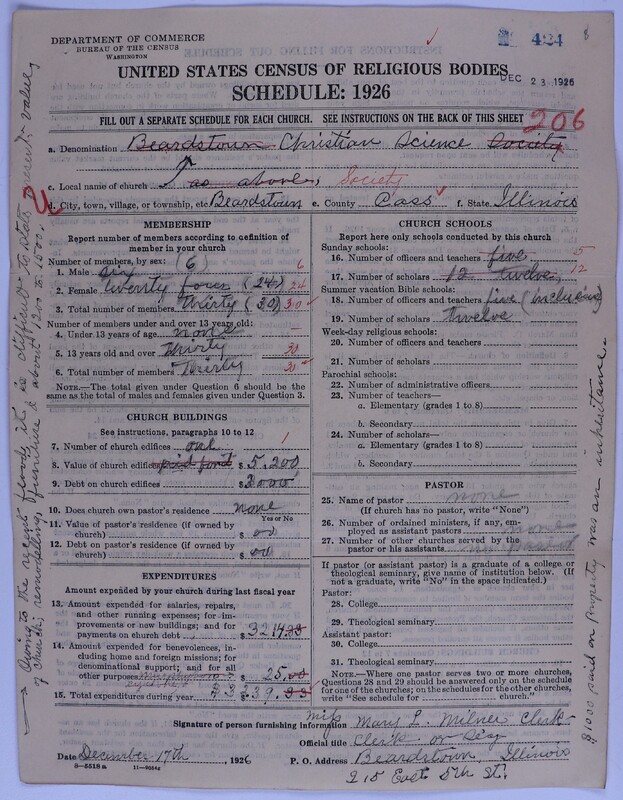 DEPARTMENT OF COMMERCE
BUREAU OF THE CENSUS
WASHINGTON
424
8
UNITED STATES CENSUS OF RELIGIOUS BODIES
DEC 23 1926
SCHEDULE: 1926
FILL OUT A SEPARATE SCHEDULE FOR EACH CHURCH. SEE INSTRUCTIONS ON THE BACK OF THIS SHEET
206
a. Denomination Beardstown Christian Science Society
c. Local name of church As above, Society
d. City, town, village, or township, etc Beardstown e. County Cass f. State Illinois
MEMBERSHIP
Report number of members according to definition of
member in your church
Number of members, by sex: (6)
1. Male six 6
2. Female twenty four (24) 24
3. Total number of members thirty (30) 30
Number of members under and over 13 years old:
4. Under 13 years of age none —
5. 13 years old and over Thirty 30
6. Total number of members Thirty 30
NOTE.—The total given under Question 6 should be
same as the total of males and females given under Question 3.
CHURCH BUILDINGS
See instructions, paragraphs 10 to 12
7. Number of church edifices one 1
8. Value of church edifices $ 5,200
9. Debt on church edifices $ 2000
10. Does church own pastor's residence none
Yes or No
11. Value of pastor's residence (if owned by
church) $ 00
12. Debt on pastor's residence (if owned by
church) $ 00
EXPENDITURES
Amount expended by your church during last fiscal year
13. Amount expended for salaries, repairs,
and other running expenses; for im-
provements or new buildings; and for
payments on church debt $ 3214.33
14. Amount expended for benevolences, in-
cluding home and foreign missions; for
denominational support; and for all
other purposes $ 25.00
15. Total expenditures during year $ 3239.33
CHURCH SCHOOLS
Report here only schools conducted by this church
Sunday schools:
16. Number of officers and teachers five 5
17. Number of scholars 12 twelve 12
Summer vacation Bible schools:
18. Number of officers and teachers five (inclusive)
19. Number of scholars twelve
Week-day religious schools:
20. Number of officers and teachers
21. Number of scholars
Parochial schools:
22. Number of administrative officers
23. Number of teachers—
a. Elementary (grades 1 to 8)
b. Secondary
24. Number of scholars—
a. Elementary (grades 1 to 8)
b. Secondary
PASTOR
25. Name of pastor none
(If church has no pastor, write "None")
26. Number of ordained ministers, if any, em-
ployed as assistant pastors none
27. Number of other churches served by the
pastor or his assistants
If pastor (or assistant pastor) is a graduate of a college or
theological seminary, give name of institution below. (If
not a graduate, write "No" in the space indicated.)
Pastor:
28. College
29. Theological seminary
Assistant pastor:
30. College
31. Theological seminary
NOTE.—Where one pastor serves two or more churches,
Questions 28 and 29 should be answered only on the schedule
for one of the churches; on the schedules for the other churches,
write "See schedule for church."
Signature of person furnishing information Miss Mary L. Milner Clerk
Official title Clerk or Secy
Date December 17th, 1926 P. O. Address Beardstown, Illinois
8—5518a 11—9054a
215 East 5th St.
Owing to the recent flood, it is difficult to state present value,
of church, remodeling, furniture & about 1200 to 1500.
$1000 paid on property was an inheritance.